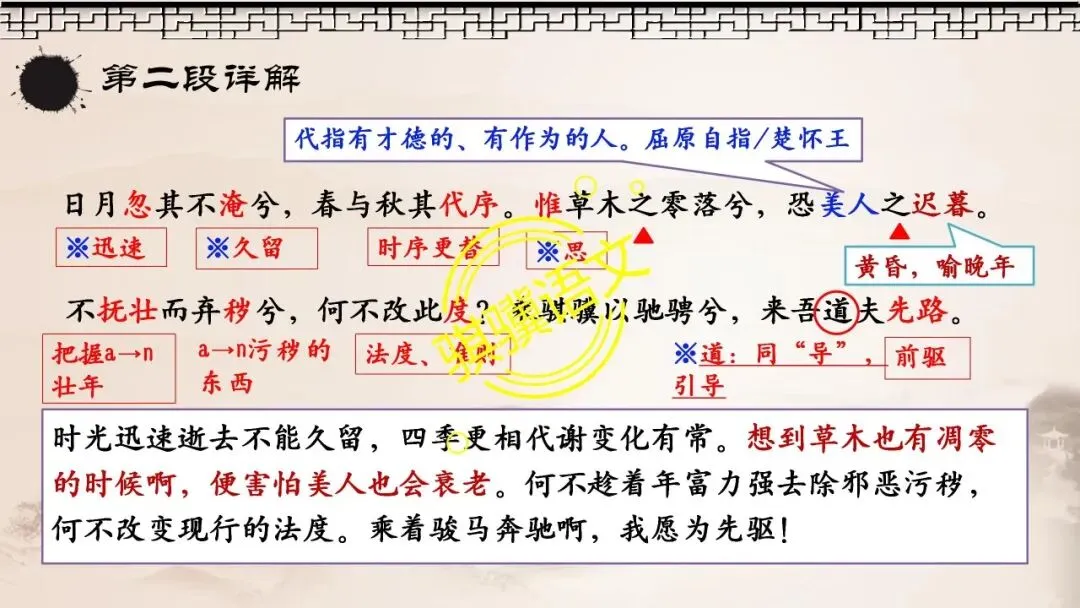 第二段详解
代指有才德的、有作为的人。屈原自指/楚怀王
日月忽其不淹兮，春与秋其代序。惟草木之零落兮，恐美人之迟暮。
※迅速 ※久留 时序更替 ※思 黄昏，喻晚年
不抚壮而弃秽兮，何不改此度？乘骐骥以驰骋兮，来吾道夫先路。
把握a→n a→n污秽的 法度、准则 ※道：同“导”， 前驱
壮年 东西 引导
时光迅速逝去不能久留，四季更相代谢变化有常。想到草木也有凋零
的时候啊，便害怕美人也会衰老。何不趁着年富力强去除邪恶污秽，
何不改变现行的法度。乘着骏马奔驰啊，我愿为先驱！
骐骥语文